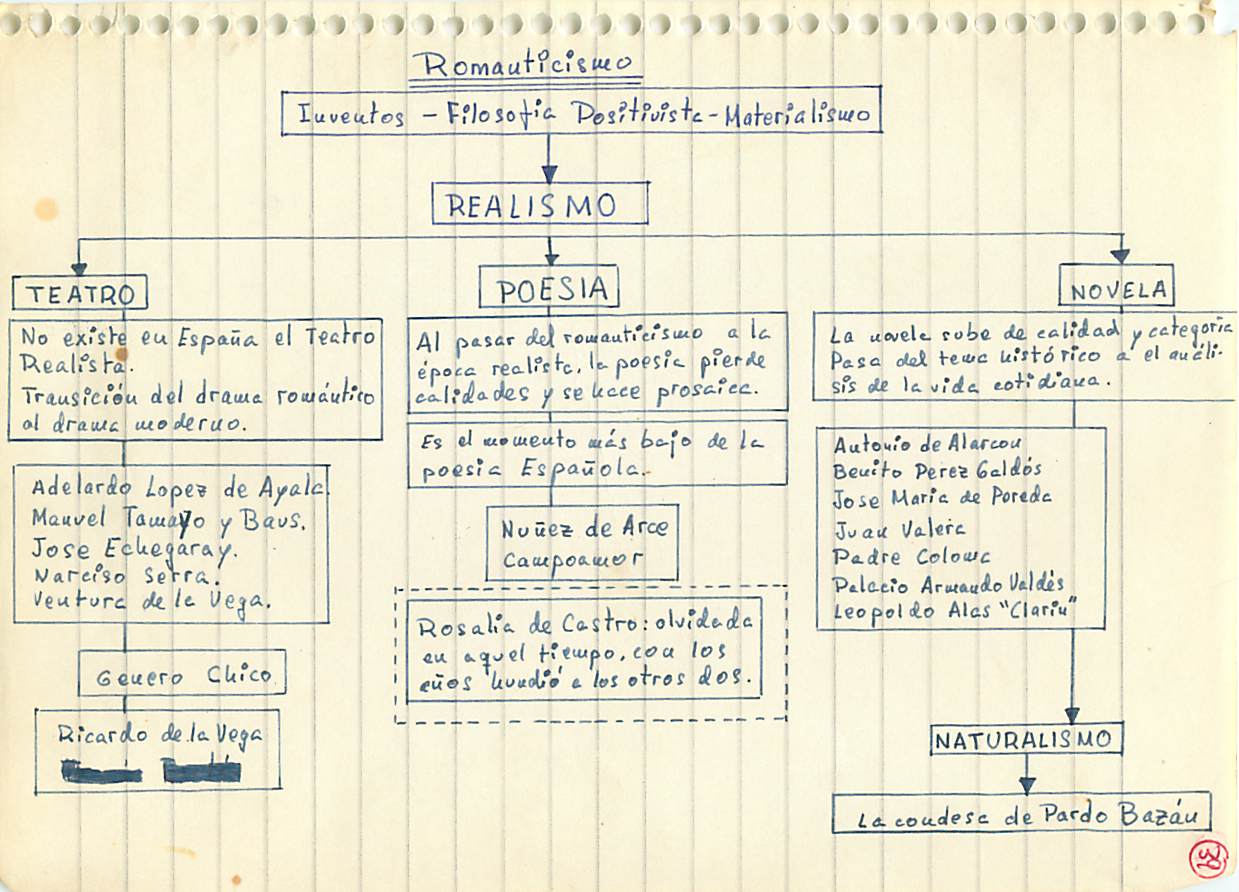 Romanticismo
Inventos - Filosofia Positivista - Materialismo
REALISMO
TEATRO
No existe en España el Teatro
Realista.
Transición del drama romántico
al drama moderno.
Adelardo Lopez de Ayala
Manuel Tamayo y Baus.
Jose Echegaray.
Narciso Serra.
Ventura de la Vega.
Genero Chico
Ricardo de la Vega
POESIA
Al pasar del romanticismo a la
época realista, la poesia pierde
calidades y se hace prosaica.
Es el momento más bajo de la
poesia Española.
Nuñez de Arce
Campoamor
Rosalia de Castro: olvidada
en aquel tiempo, con los
años "hundió" a los otros dos.
NOVELA
La novela sube de calidad y categoria
Pasa del tema histórico a el análi-
sis de la vida cotidiana.
Antonio de Alarcon
Benito Perez Galdós
Jose Maria de Pereda
Juan Valera
Padre Coloma
Palacio Armando Valdés
Leopoldo Alas "Clarin"
NATURALISMO
La condesa de Pardo Bazán